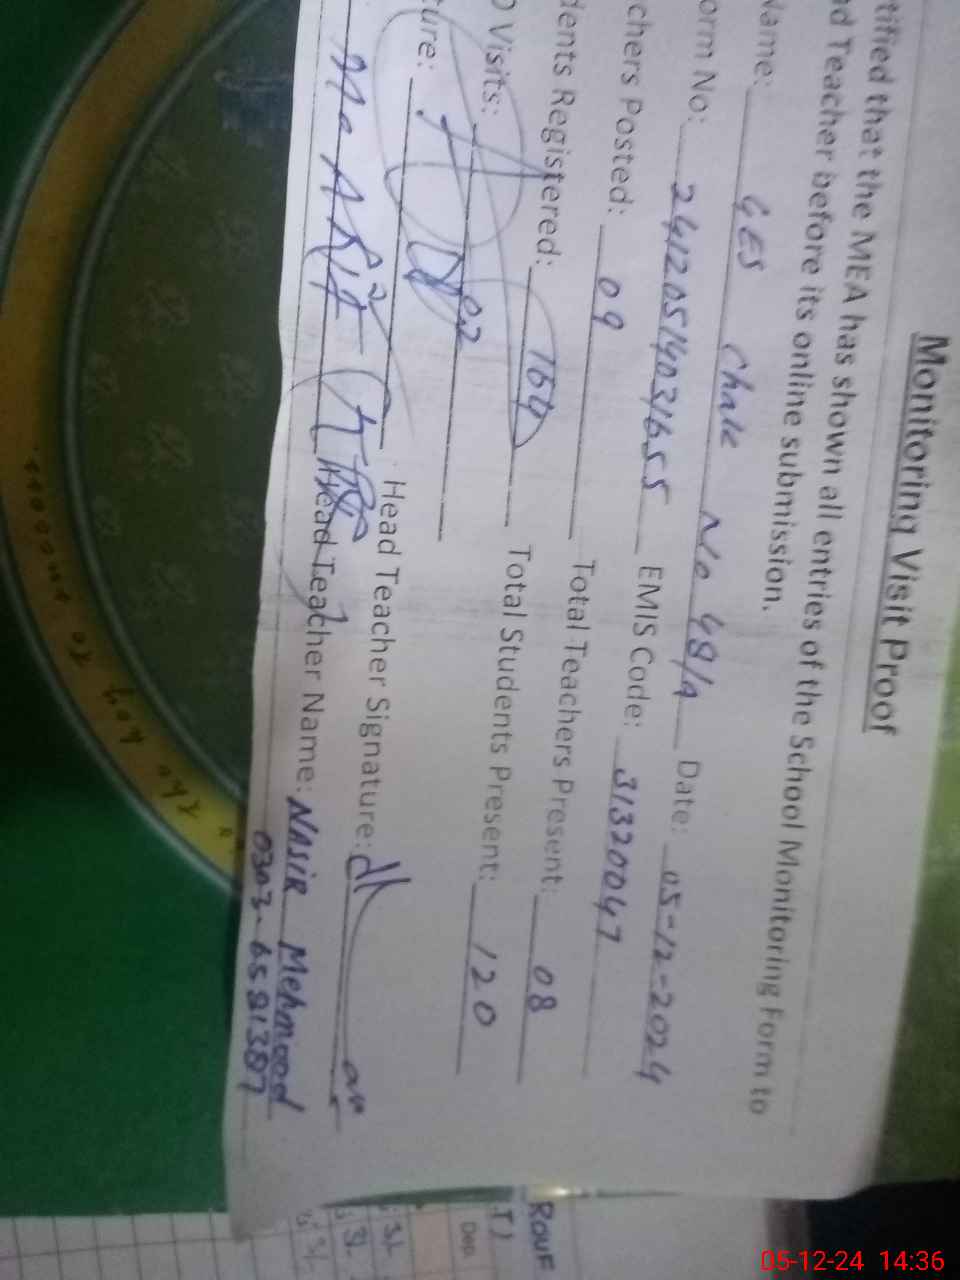 Monitoring Visit Proof
tified that the MEA has shown all entries of the School Monitoring Form to
d Teacher before its online submission.
Name: GES Chak No 48/A Date: 05-12-2024
orm No: 24120514031655 EMIS Code: 31320047
chers Posted: 09 Total Teachers Present: 08
dents Registered: 164 Total Students Present: 120
O Visits: 02
ture: Head Teacher Signature:
Head Teacher Name: NASIR Mehmood
0303-6581387
ROUF
Dep.
05-12-24 14:36